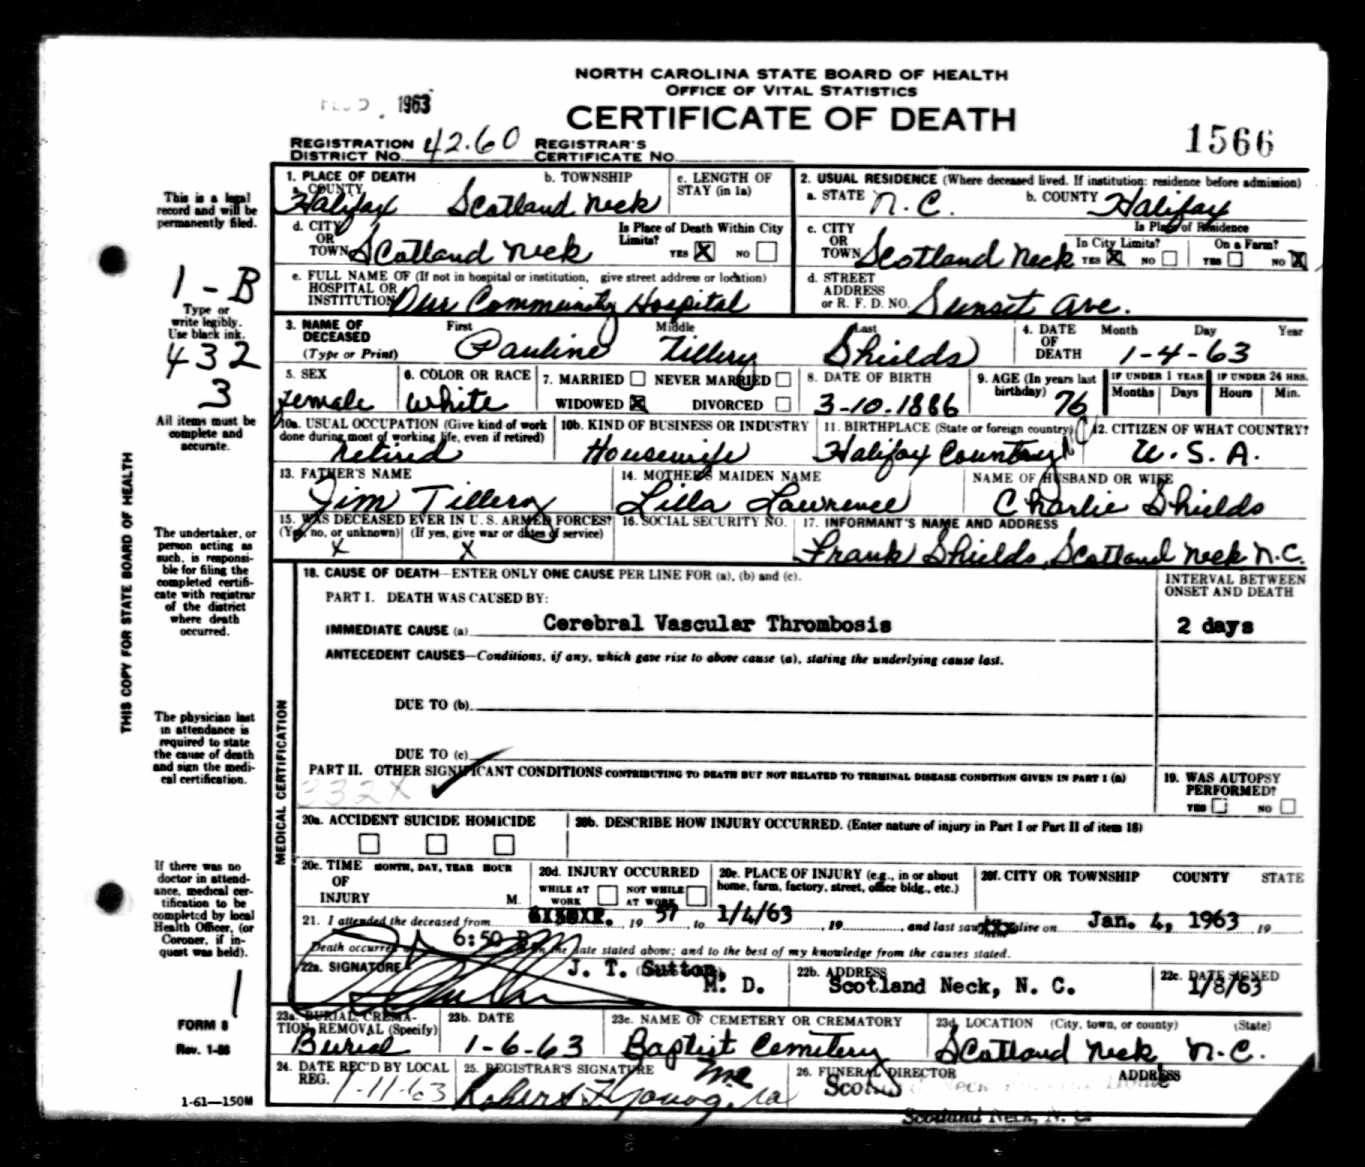 NORTH CAROLINA STATE BOARD OF HEALTH
OFFICE OF VITAL STATISTICS
1963
CERTIFICATE OF DEATH
1566
REGISTRATION DISTRICT NO. 42.60 REGISTRAR'S CERTIFICATE NO.
This is a legal record and will be permanently filed.
1-B
Type or write legibly. Use black ink.
432
3
All items must be complete and accurate.
THIS COPY FOR STATE BOARD OF HEALTH
The undertaker, or person acting as such, is responsible for filing the completed certificate with registrar of the district where death occurred.
The physician last in attendance is required to state the cause of death and sign the medical certification.
If there was no doctor in attendance, medical certification to be completed by local Health Officer, (or Coroner, if inquest was held).
1
FORM 8
1-61—150M
1. PLACE OF DEATH
a. COUNTY Halifax b. TOWNSHIP Scotland Neck c. LENGTH OF STAY (in 1a)
2. USUAL RESIDENCE (Where deceased lived. If institution: residence before admission)
a. STATE N.C. b. COUNTY Halifax
d. CITY OR TOWN Scotland Neck Is Place of Death Within City Limits? YES X NO
c. CITY OR TOWN Scotland Neck Is Place of Residence In City Limits? YES X NO On a Farm? YES NO X
e. FULL NAME OF HOSPITAL OR INSTITUTION (If not in hospital or institution, give street address or location) Our Community Hospital
d. STREET ADDRESS or R. F. D. NO. Sunset Ave.
3. NAME OF DECEASED (Type or Print) First Pauline Middle Tillery Last Shields
4. DATE OF DEATH Month Day Year 1-4-63
5. SEX Female
6. COLOR OR RACE White
7. MARRIED NEVER MARRIED WIDOWED X DIVORCED
8. DATE OF BIRTH 3-10-1886
9. AGE (In years last birthday) 76 IF UNDER 1 YEAR Months Days IF UNDER 24 HRS. Hours Min.
10a. USUAL OCCUPATION (Give kind of work done during most of working life, even if retired) Retired
10b. KIND OF BUSINESS OR INDUSTRY Housewife
11. BIRTHPLACE (State or foreign country) Halifax Country
12. CITIZEN OF WHAT COUNTRY? U.S.A.
13. FATHER'S NAME Jim Tillery
14. MOTHER'S MAIDEN NAME Lilla Lawrence
NAME OF HUSBAND OR WIFE Charlie Shields
15. WAS DECEASED EVER IN U. S. ARMED FORCES? (Yes, no, or unknown) (If yes, give war or dates of service) X X
16. SOCIAL SECURITY NO.
17. INFORMANT'S NAME AND ADDRESS Frank Shields, Scotland Neck N.C.
MEDICAL CERTIFICATION
18. CAUSE OF DEATH—ENTER ONLY ONE CAUSE PER LINE FOR (a), (b) and (c).
INTERVAL BETWEEN ONSET AND DEATH
PART I. DEATH WAS CAUSED BY:
IMMEDIATE CAUSE (a) Cerebral Vascular Thrombosis 2 days
ANTECEDENT CAUSES—Conditions, if any, which gave rise to above cause (a), stating the underlying cause last.
DUE TO (b)
DUE TO (c)
PART II. OTHER SIGNIFICANT CONDITIONS CONTRIBUTING TO DEATH BUT NOT RELATED TO TERMINAL DISEASE CONDITION GIVEN IN PART I (a)
332X
19. WAS AUTOPSY PERFORMED? YES NO
20a. ACCIDENT SUICIDE HOMICIDE
20b. DESCRIBE HOW INJURY OCCURRED. (Enter nature of injury in Part I or Part II of item 18)
20c. TIME OF INJURY MONTH, DAY, YEAR HOUR M.
20d. INJURY OCCURRED WHILE AT WORK NOT WHILE AT WORK
20e. PLACE OF INJURY (e.g., in or about home, farm, factory, street, office bldg., etc.)
20f. CITY OR TOWNSHIP COUNTY STATE
21. I attended the deceased from 19 57, to 1/4/63, 19 and last saw alive on Jan. 4, 1963 19
Death occurred 6:50 P the date stated above; and to the best of my knowledge from the causes stated.
22a. SIGNATURE J. T. Sutton, M. D.
22b. ADDRESS Scotland Neck, N. C.
22c. DATE SIGNED 1/8/63
23a. BURIAL, CREMATION, REMOVAL (Specify) Burial
23b. DATE 1-6-63
23c. NAME OF CEMETERY OR CREMATORY Baptist Cemetery
23d. LOCATION (City, town, or county) (State) Scotland Neck N.C.
24. DATE REC'D BY LOCAL REG. 1-11-63
25. REGISTRAR'S SIGNATURE Robert F. Young
26. FUNERAL DIRECTOR ADDRESS
Scotland Neck, N. C.